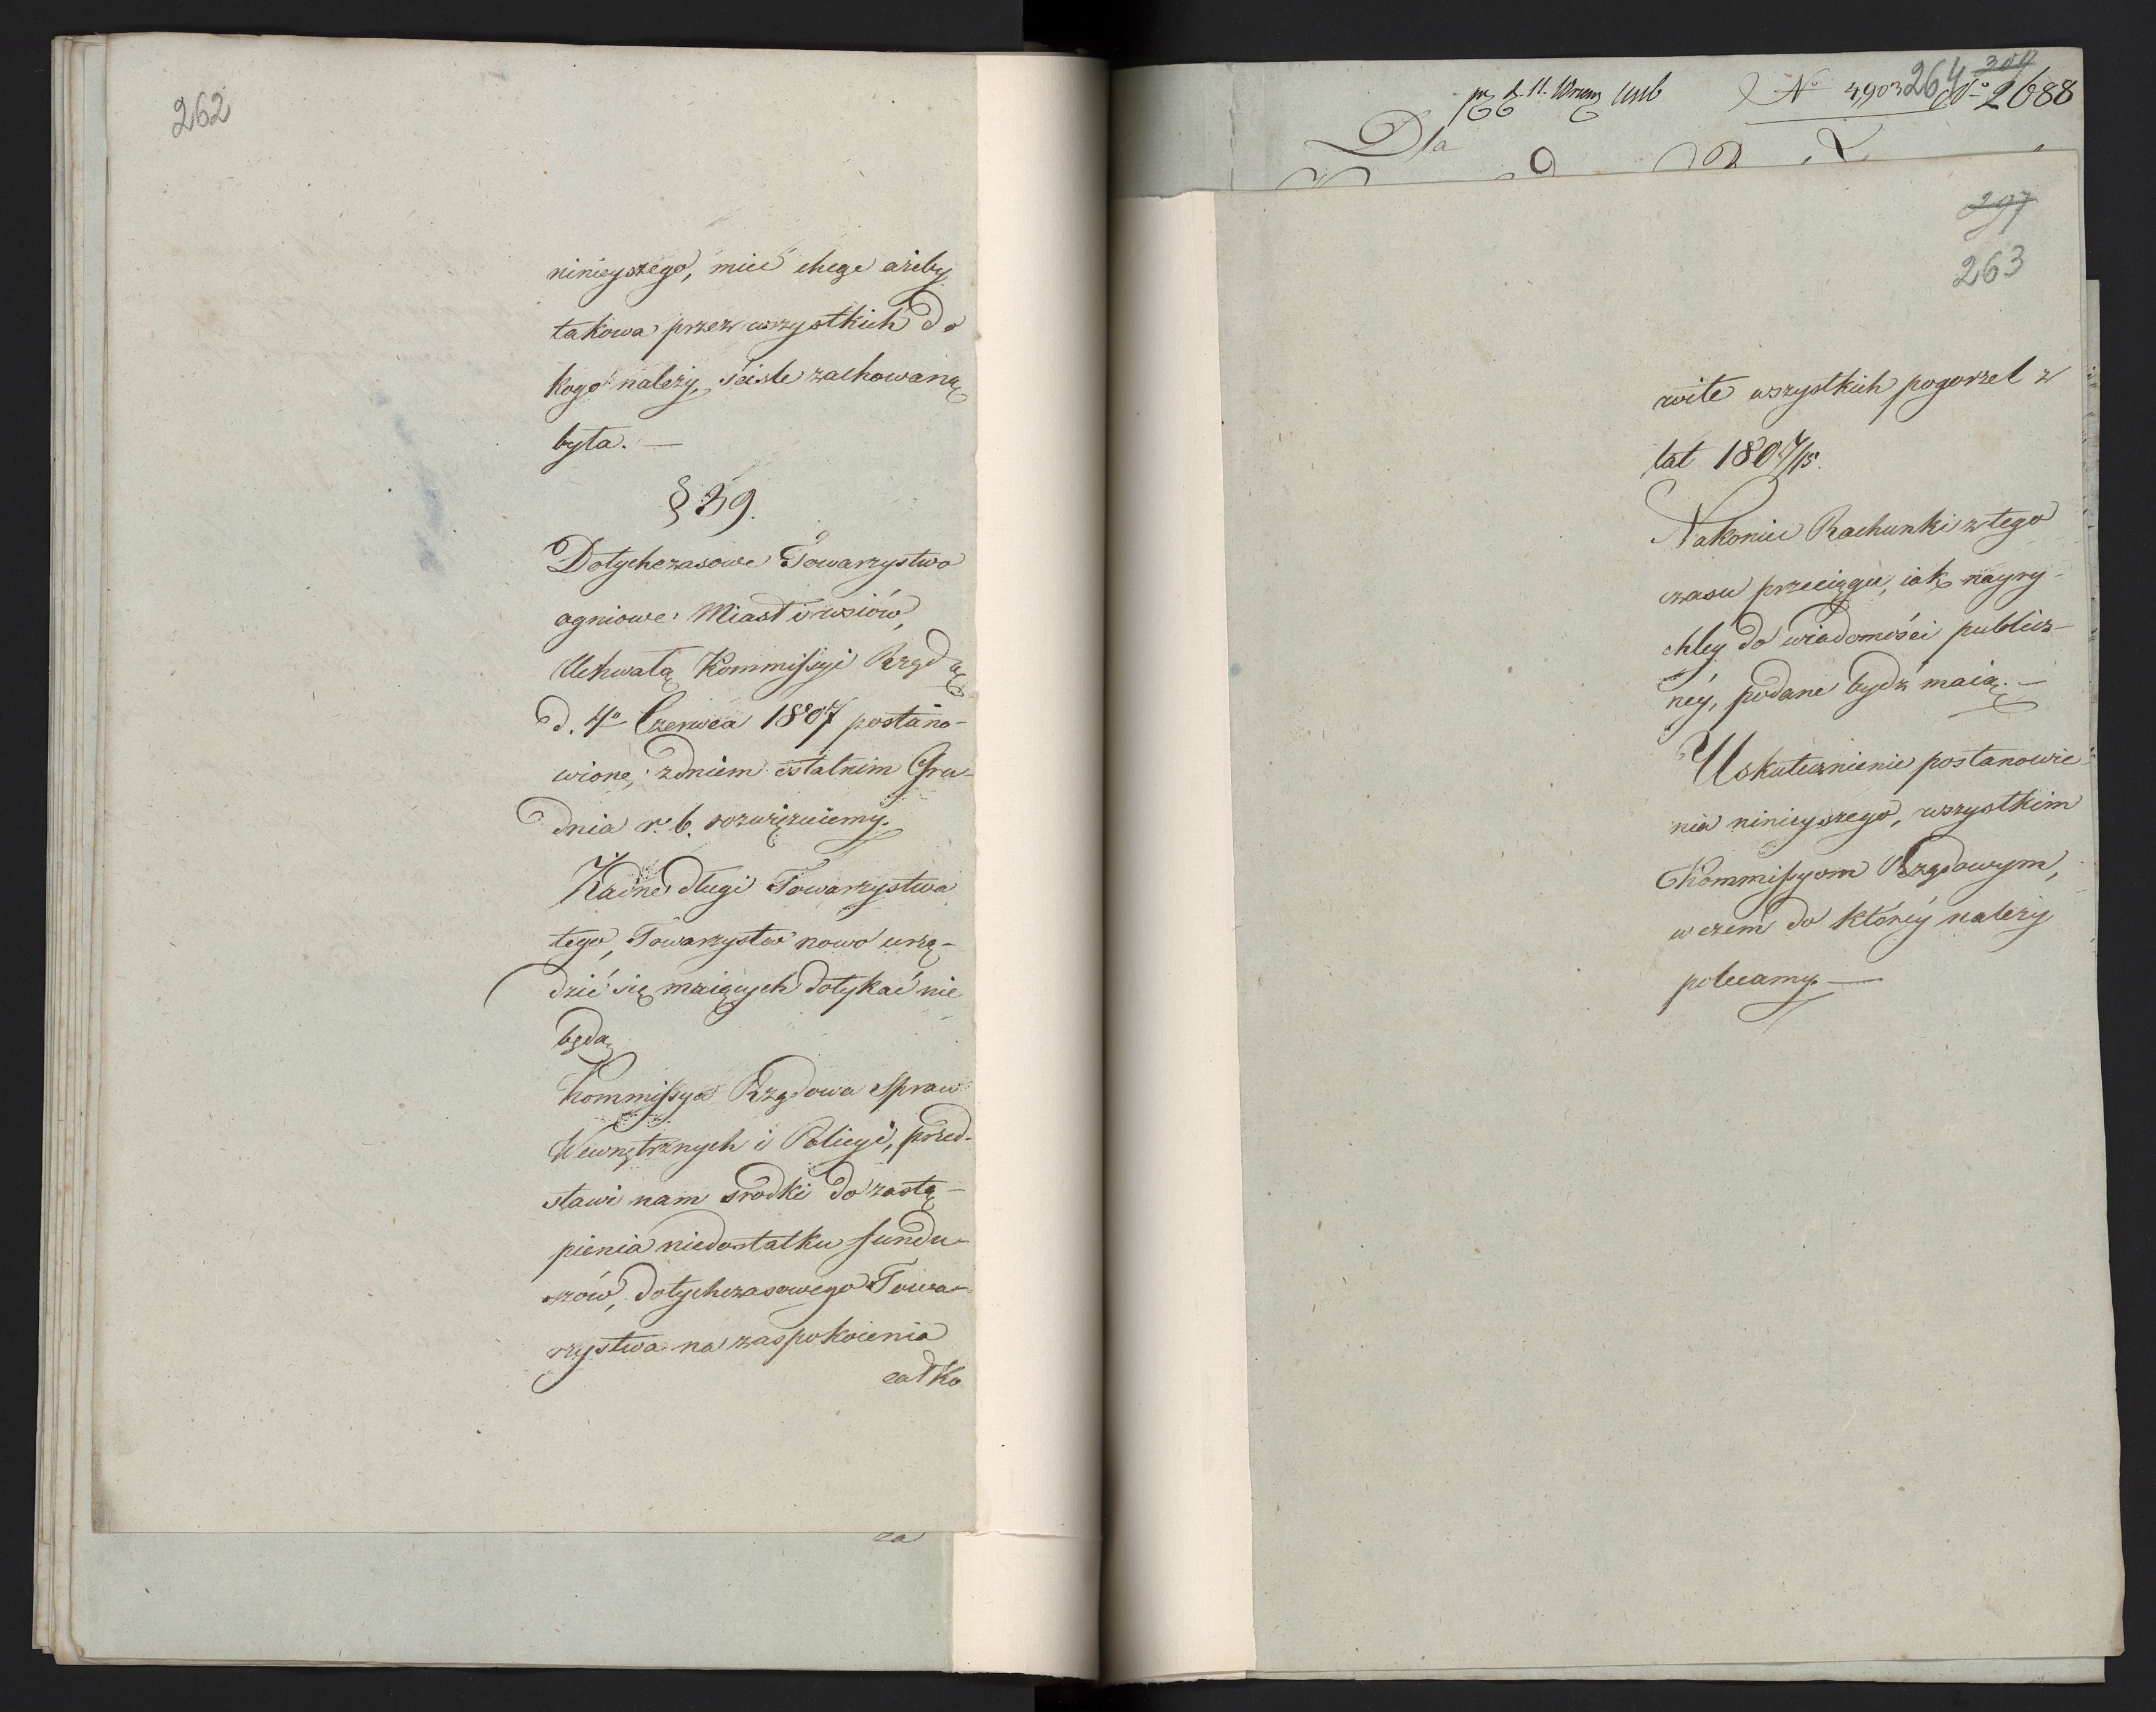 262
ninieyszego, mieć chcąc ażeby
takowa przez wszystkich do
kogo należy, ściśle zachowaną
była. —
§ 39.
Dotychczasowe Towarzystwo
ogniowe Miast i wsiów,
Uchwałą Kommissyi Rządz.
d. 4º Czerwca 1807 postano-
wione, z dniem ostatnim Gru-
dnia r. b. rozwięzuiemy.
Żadne długi Towarzystwa
tego, Towarzystw nowo urzą-
dzić się maiących dotykać nie
będą
Kommissya Rządowa Spraw
Wewnętrznych i Policyi, przed-
stawi nam srodki do zastą-
pienia niedostatku fundu-
szów, dotychczasowego Towa-
rzystwa na zaspokoienia
całko
za
Nº 4903 264 Nº 2688
Dla
297
263
wite wszystkich pogorzel z
lat 1807/15.
Nakoniec Rachunki z tego
czasu przeciągu, iak nayry-
chley do wiadomości publicz-
ney, podane bydź maią. —
Uskutecznienie postanowie-
nia ninieyszego, wszystkim
Kommissyom Rządowym,
w czem do którey należy
polecamy. —